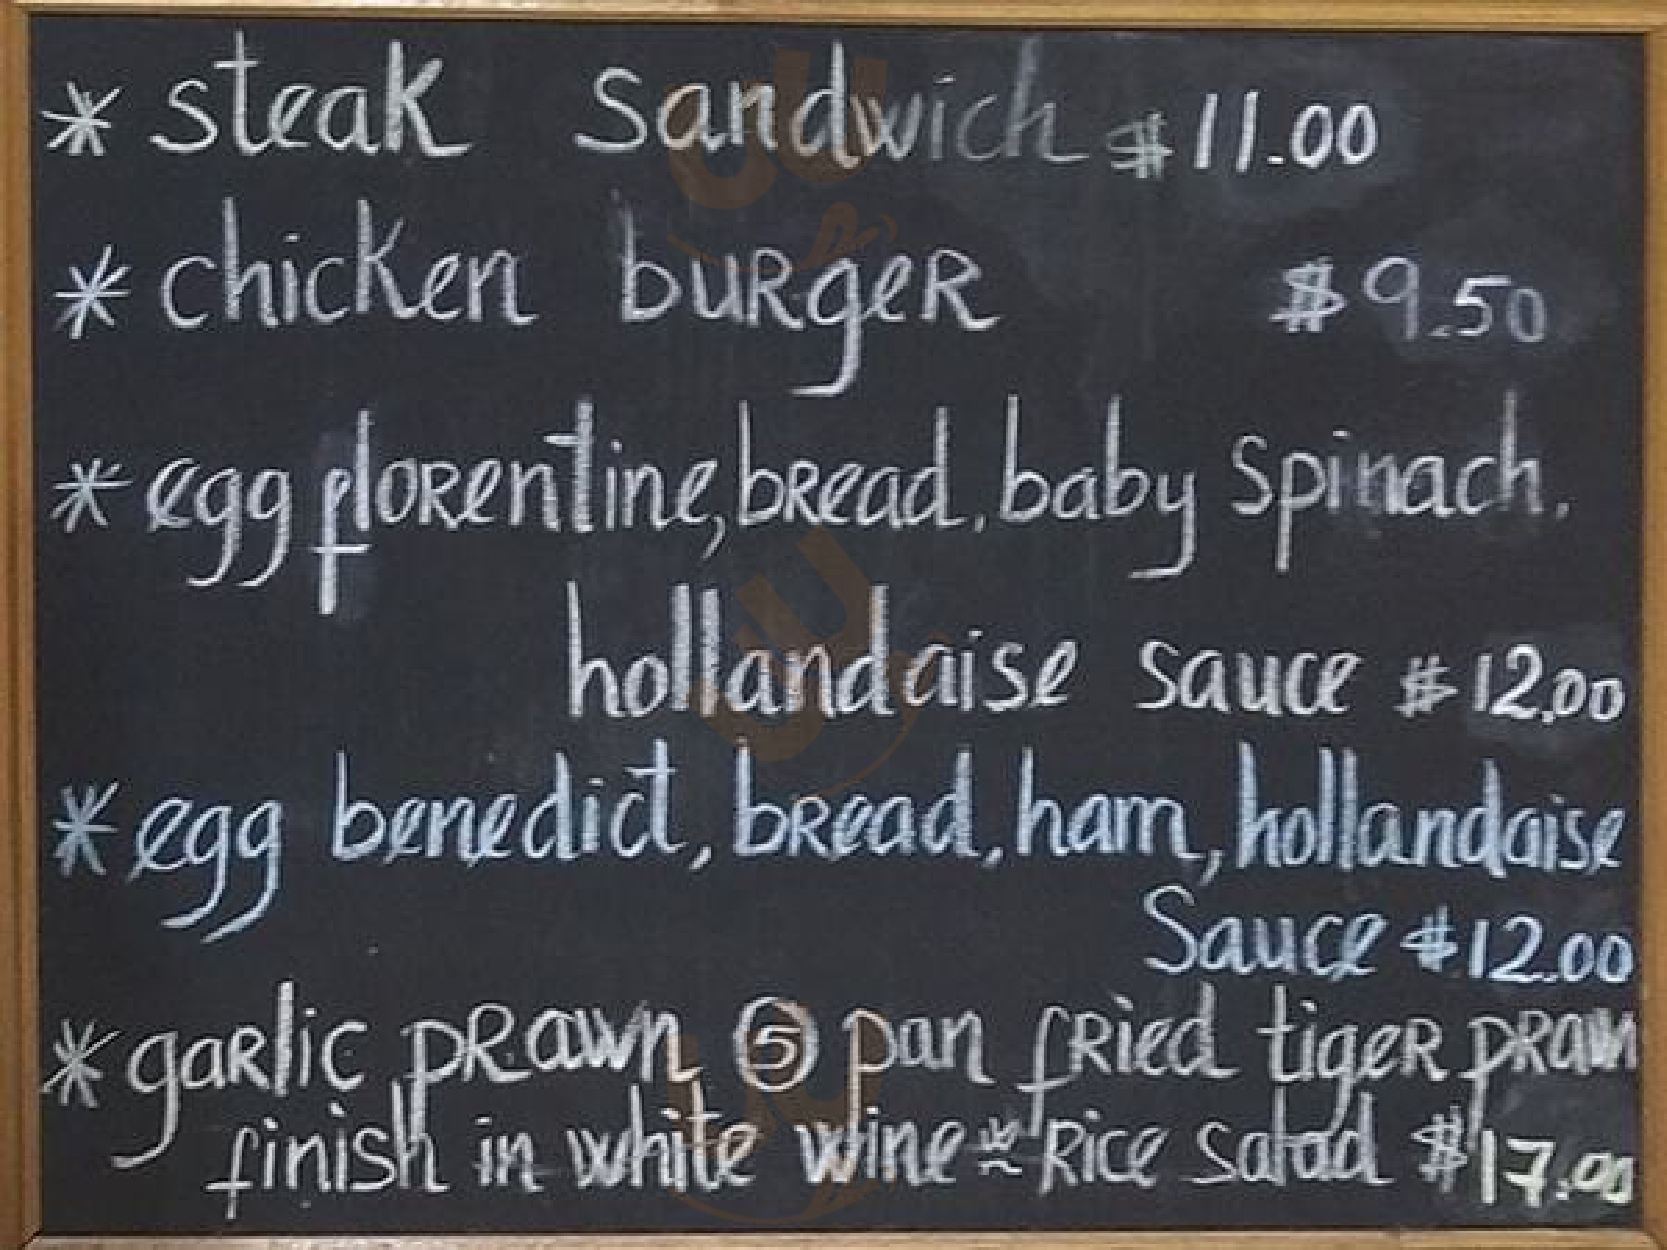 * steak sandwich $11.00
* chicken burger $9.50
* egg florentine, bread, baby spinach,
hollandaise sauce $12.00
* egg benedict, bread, ham, hollandaise
sauce $12.00
* garlic prawn ⑤ pan fried tiger prawn
finish in white wine rice salad $17.00